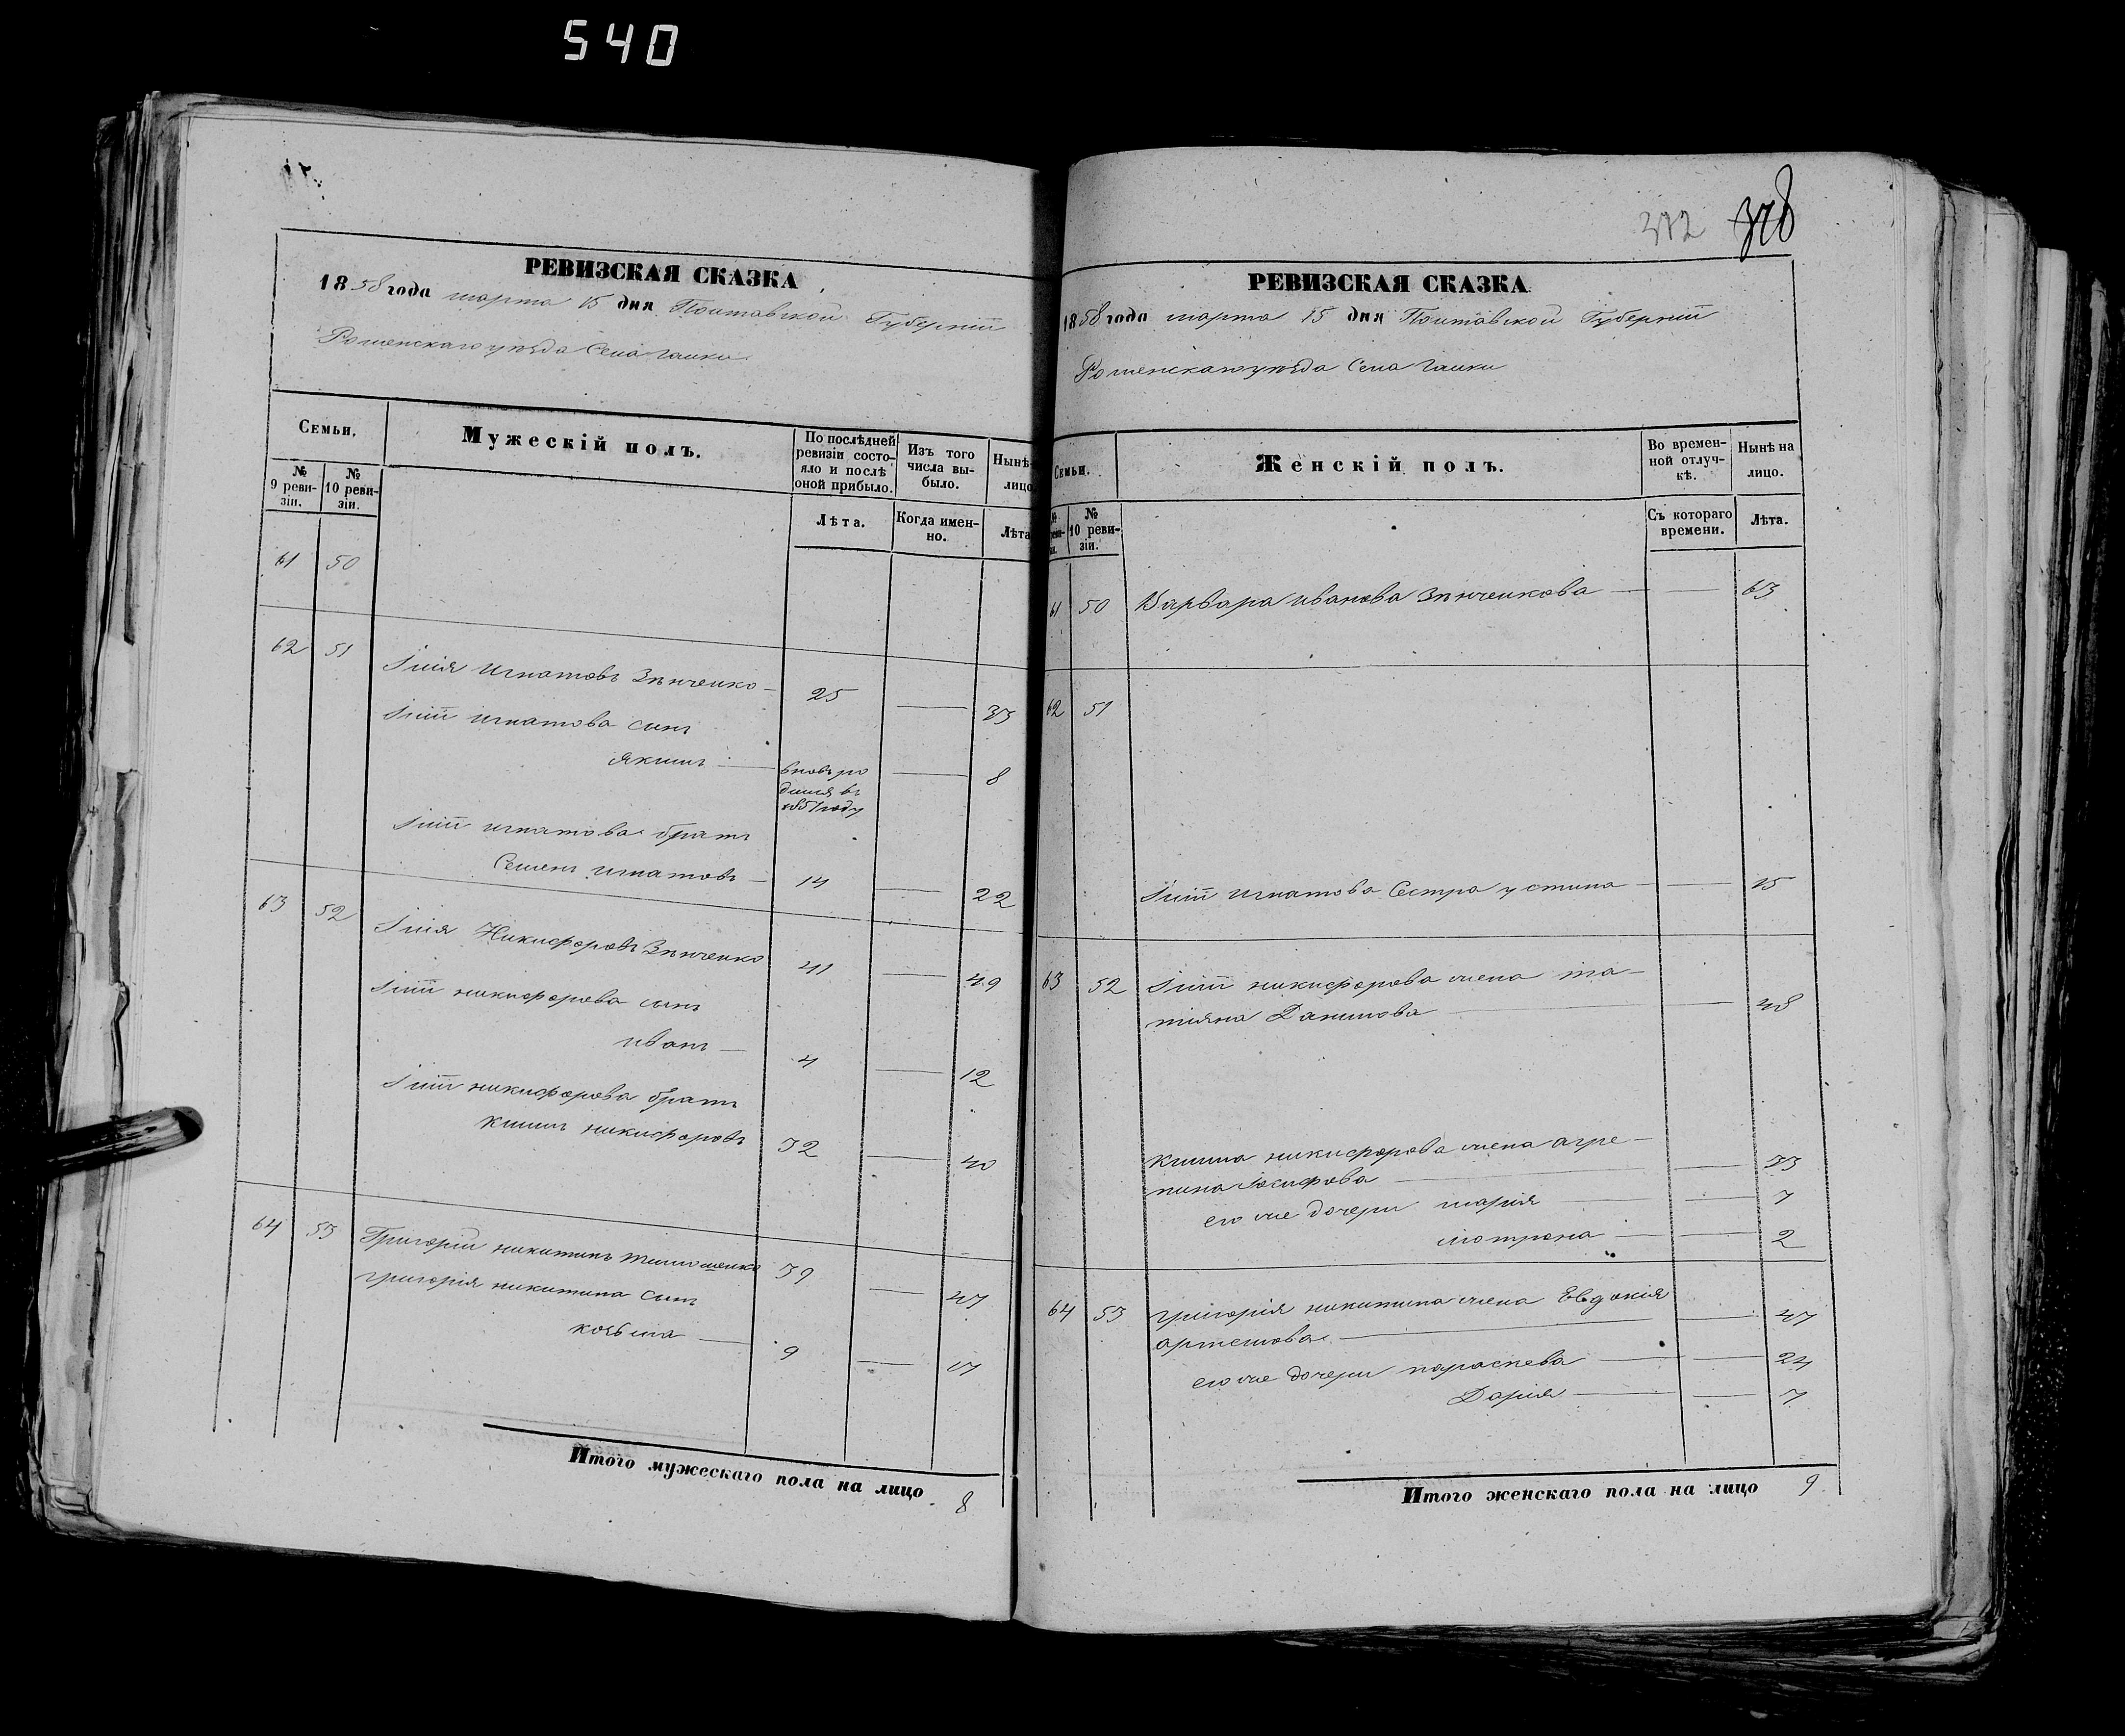 540
РЕВИЗСКАЯ СКАЗКА
1858 года марта 15 дня Полтавской Губерніи
Роменскаго уѣзда Села Галки
Семьи.
Мужескій полъ.
По послѣдней ревизіи состояло и послѣ оной прибыло.
Изъ того числа выбыло.
Нынѣ лицо
№ 9 ревизіи.
№ 10 ревизіи.
Лѣта.
Когда именно.
Лѣта
61 50
62 51 Илія Игнатовъ Зѣнченко 25 — 33
Иліи игнатова сынъ
якимъ — вновь родился въ 1851 году — 8
Иліи игнатова братъ
Семенъ игнатовъ — 14 — 22
63 52 Илія Никифоровъ Зѣнченко 41 — 49
Иліи никифорова сынъ
иванъ — 4 — 12
Иліи никифорова братъ
климъ никифоровъ 32 — 40
64 53 Григорій никитинъ тимошенко 39 — 47
григорія никитина сынъ
козьма — 9 — 17
Итого мужескаго пола на лицо 8
372 378
РЕВИЗСКАЯ СКАЗКА
1858 года марта 15 дня Полтавской Губерніи
Роменскаго уѣзда Села Галки
Семьи.
Женскій полъ.
Во временной отлучкѣ.
Нынѣ на лицо.
№ 10 ревизіи.
Съ котораго времени.
Лѣта.
61 50 Варвара иванова Зѣнченкова — — 63
62 51
Иліи игнатова Сестра устина — — 15
63 52 Иліи никифорова жена та-
тіяна Данилова — — 48
клима никифорова жена агре-
пина Іосифова — — 33
его же дочери марія — — 7
мотрона — — 2
64 53 григорія никитина жена Евдокія
артемова — — 47
его же дочери параскева — — 24
Дарія — — 7
Итого женскаго пола на лицо 9